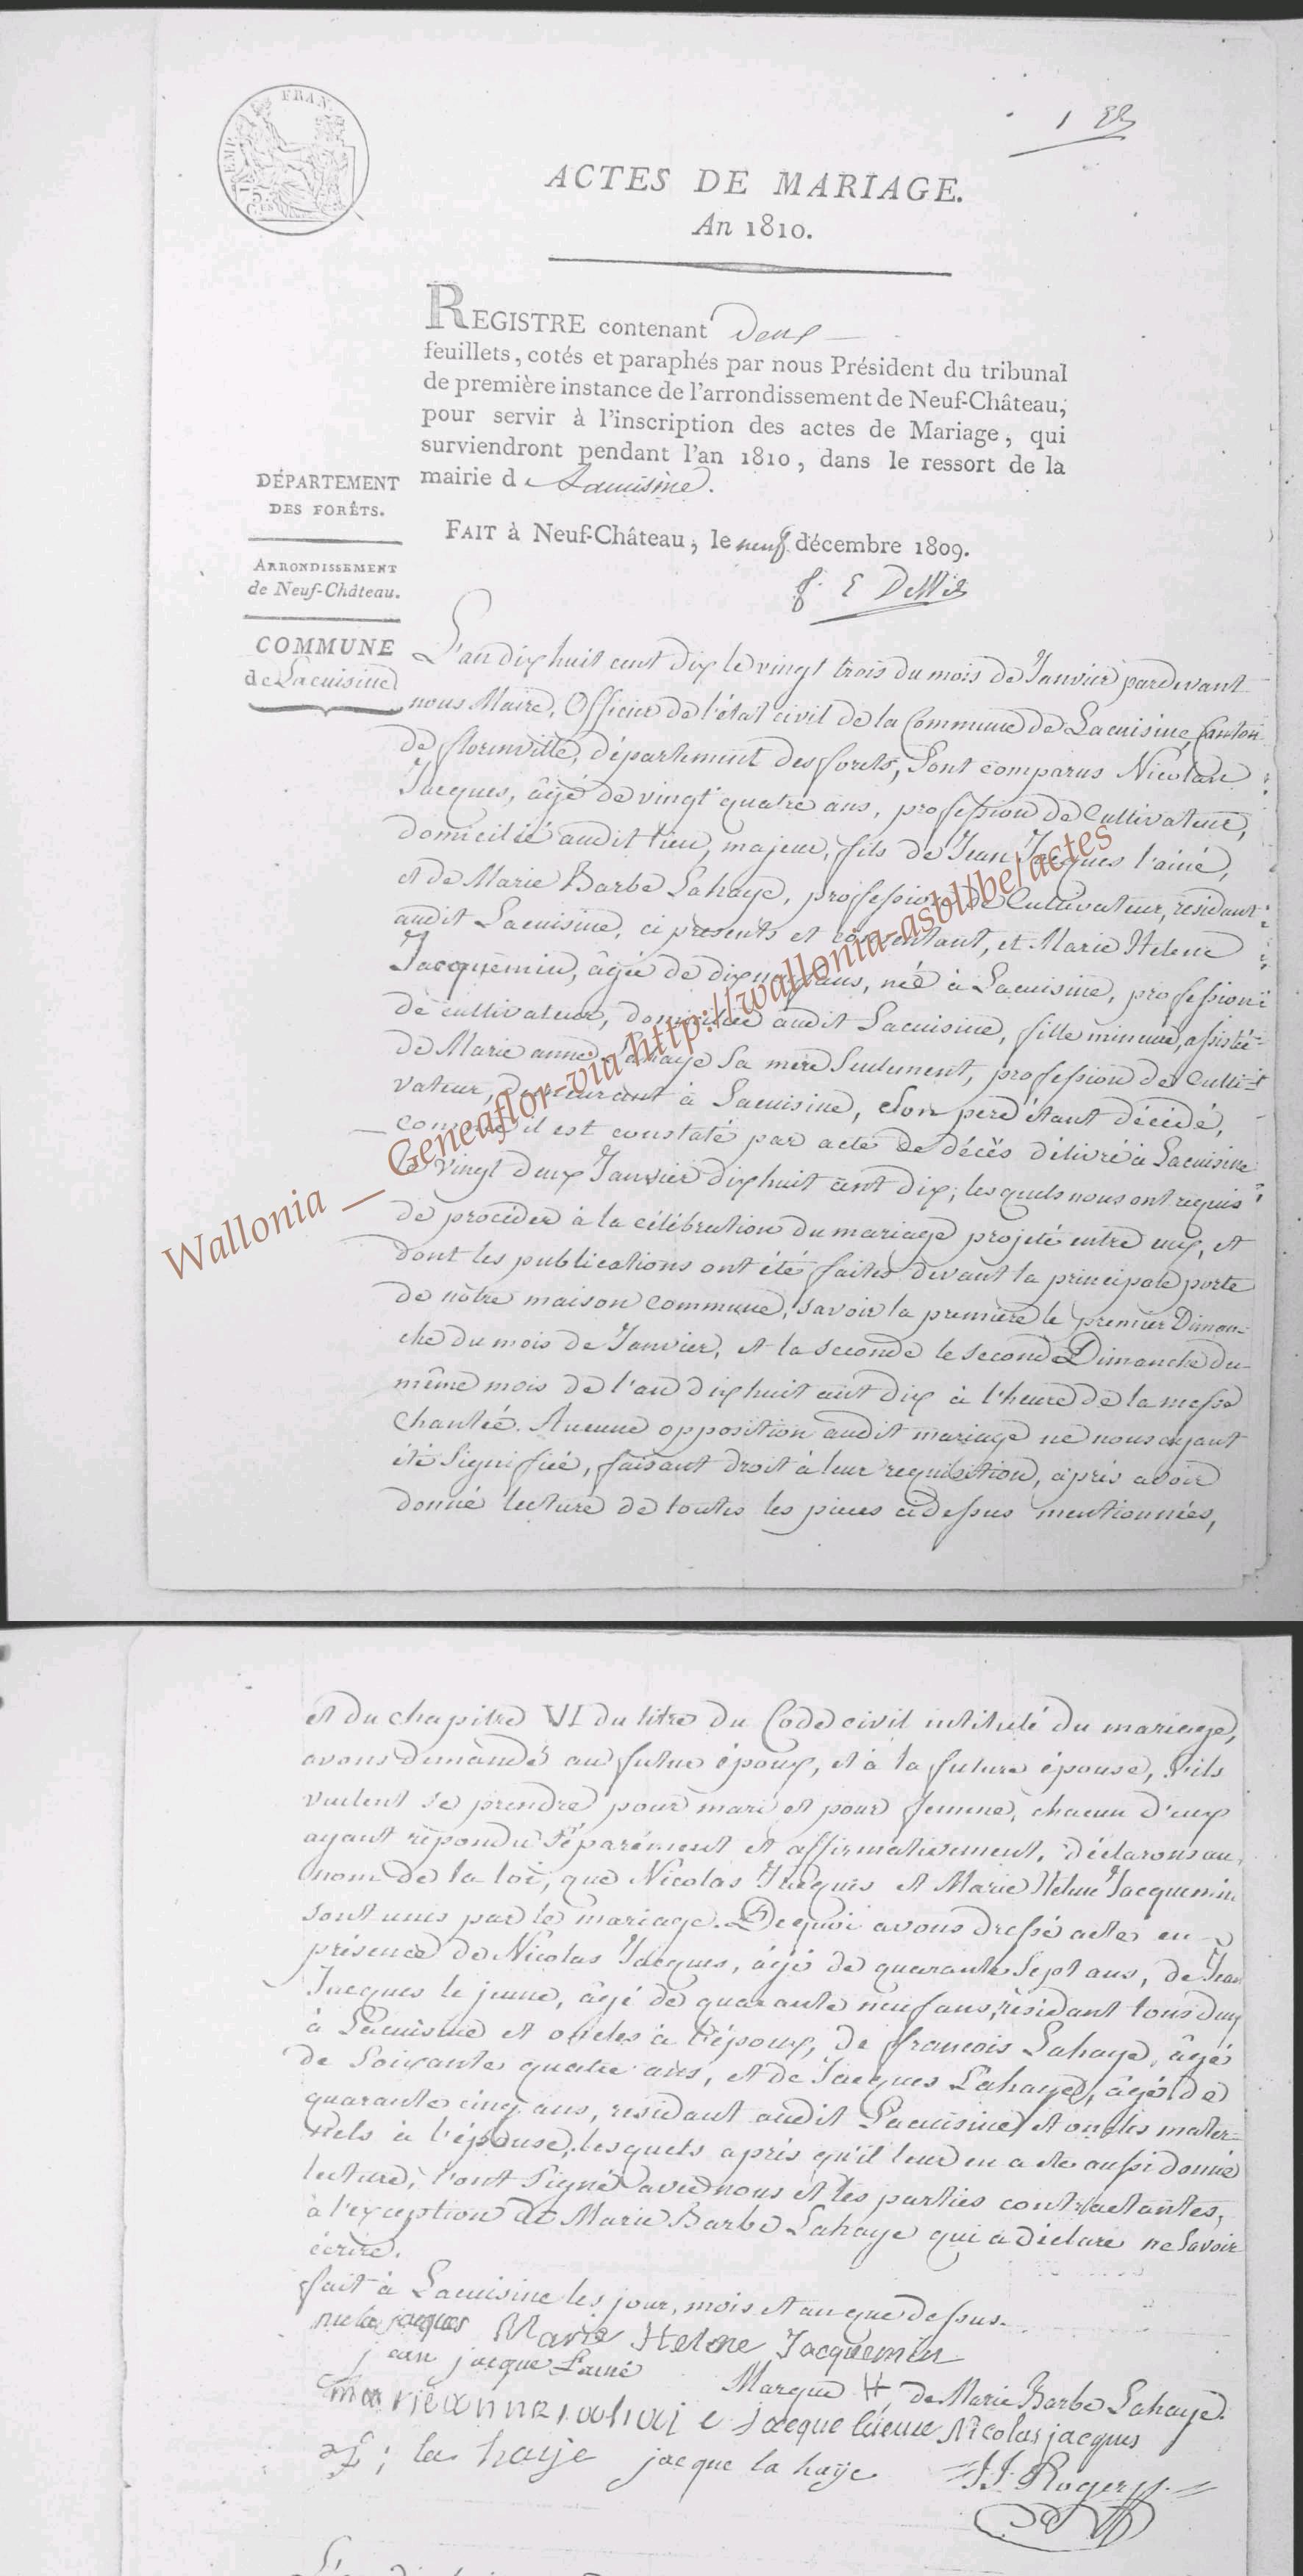 EMP. FRAN.
75
C.es
1 er
ACTES DE MARIAGE.
An 1810.
REGISTRE contenant Deux
feuillets, cotés et paraphés par nous Président du tribunal
de première instance de l'arrondissement de Neuf-Château,
pour servir à l'inscription des actes de Mariage, qui
surviendront pendant l'an 1810, dans le ressort de la
mairie d Lacuisine.
DÉPARTEMENT
DES FORÊTS.
FAIT à Neuf-Château, le neuf décembre 1809.
ARRONDISSEMENT
de Neuf-Château.
COMMUNE
de Lacuisine
L'an dix huit cent dix le vingt trois du mois de Janvier pardevant
nous Maire, Officier de l'état civil de la Commune de Lacuisine, Canton
de florenville, département des forets, Sont comparus Nicolas
Jacques, âgé de vingt quatre ans, profession de Cultivateur,
domicilié audit lieu, majeur, fils de Jean Jacques l'ainé,
et de Marie Barbe Lahaye, profession de Cultivateur, résidant
audit Lacuisine, ci présents et consentant, et Marie Helene
Jacquemin, âgée de dix neuf ans, née à Lacuisine, profession
de cultivateur, domiciliée audit Lacuisine, fille mineure, assistée
de Marie anne Lahaye Sa mère Seulement, profession de Culti-
vateur, demeurant à Lacuisine, Son père étant décédé,
comme il est constaté par acte de décès délivré à Lacuisine
le vingt deux Janvier dix huit cent dix; lesquels nous ont requis
de procéder à la célébration du mariage projeté entre eux, et
dont les publications ont été faites devant la principale porte
de nôtre maison commune, savoir la première le premier Diman-
che du mois de Janvier, et la seconde le second Dimanche du
même mois de l'an dix huit cent dix à l'heure de la messe
Chantée. Aucune opposition audit mariage ne nous ayant
été Signifiée, faisant droit à leur requisition, après avoir
donné lecture de toutes les pieces ci dessus mentionnées,
Wallonia _ Geneaflor-via http://wallonia-asbl/be/actes
et du chapitre VI du titre du Code civil intitulé du mariage,
avons demandé au futur époux, et à la future épouse, S'ils
veulent se prendre pour mari et pour femme, chacun d'eux
ayant répondu Séparément et affirmativement, déclarons au
nom de la loi, que Nicolas Jacques et Marie Helene Jacquemin
sont unis par le mariage. De quoi avons dressé acte en
présence de Nicolas Jacques, âgé de quarante Sept ans, de Jean
Jacques le jeune, âgé de quarante neuf ans, résidant tous deux
à Lacuisine et oncles à l'époux, de françois Lahaye, âgé
de Soixante quatre ans, et de Jacques Lahaye, âgé de
quarante cinq ans, residant audit Lacuisine et oncles mater-
nels à l'épouse, lesquels après qu'il leur en a été aussi donné
lecture, l'ont Signé avec nous et les parties contractantes,
à l'exception de Marie Barbe Lahaye qui a déclaré ne Savoir
écrire.
fait à Lacuisine les jour, mois et an que dessus.
nicola jacques Marie Helene Jacquemin
jean jacque Lainé Marque H de Marie Barbe Lahaye.
marie anne lahaie jacque Nicolas jacques
la haye jacque la haye JJ Roger